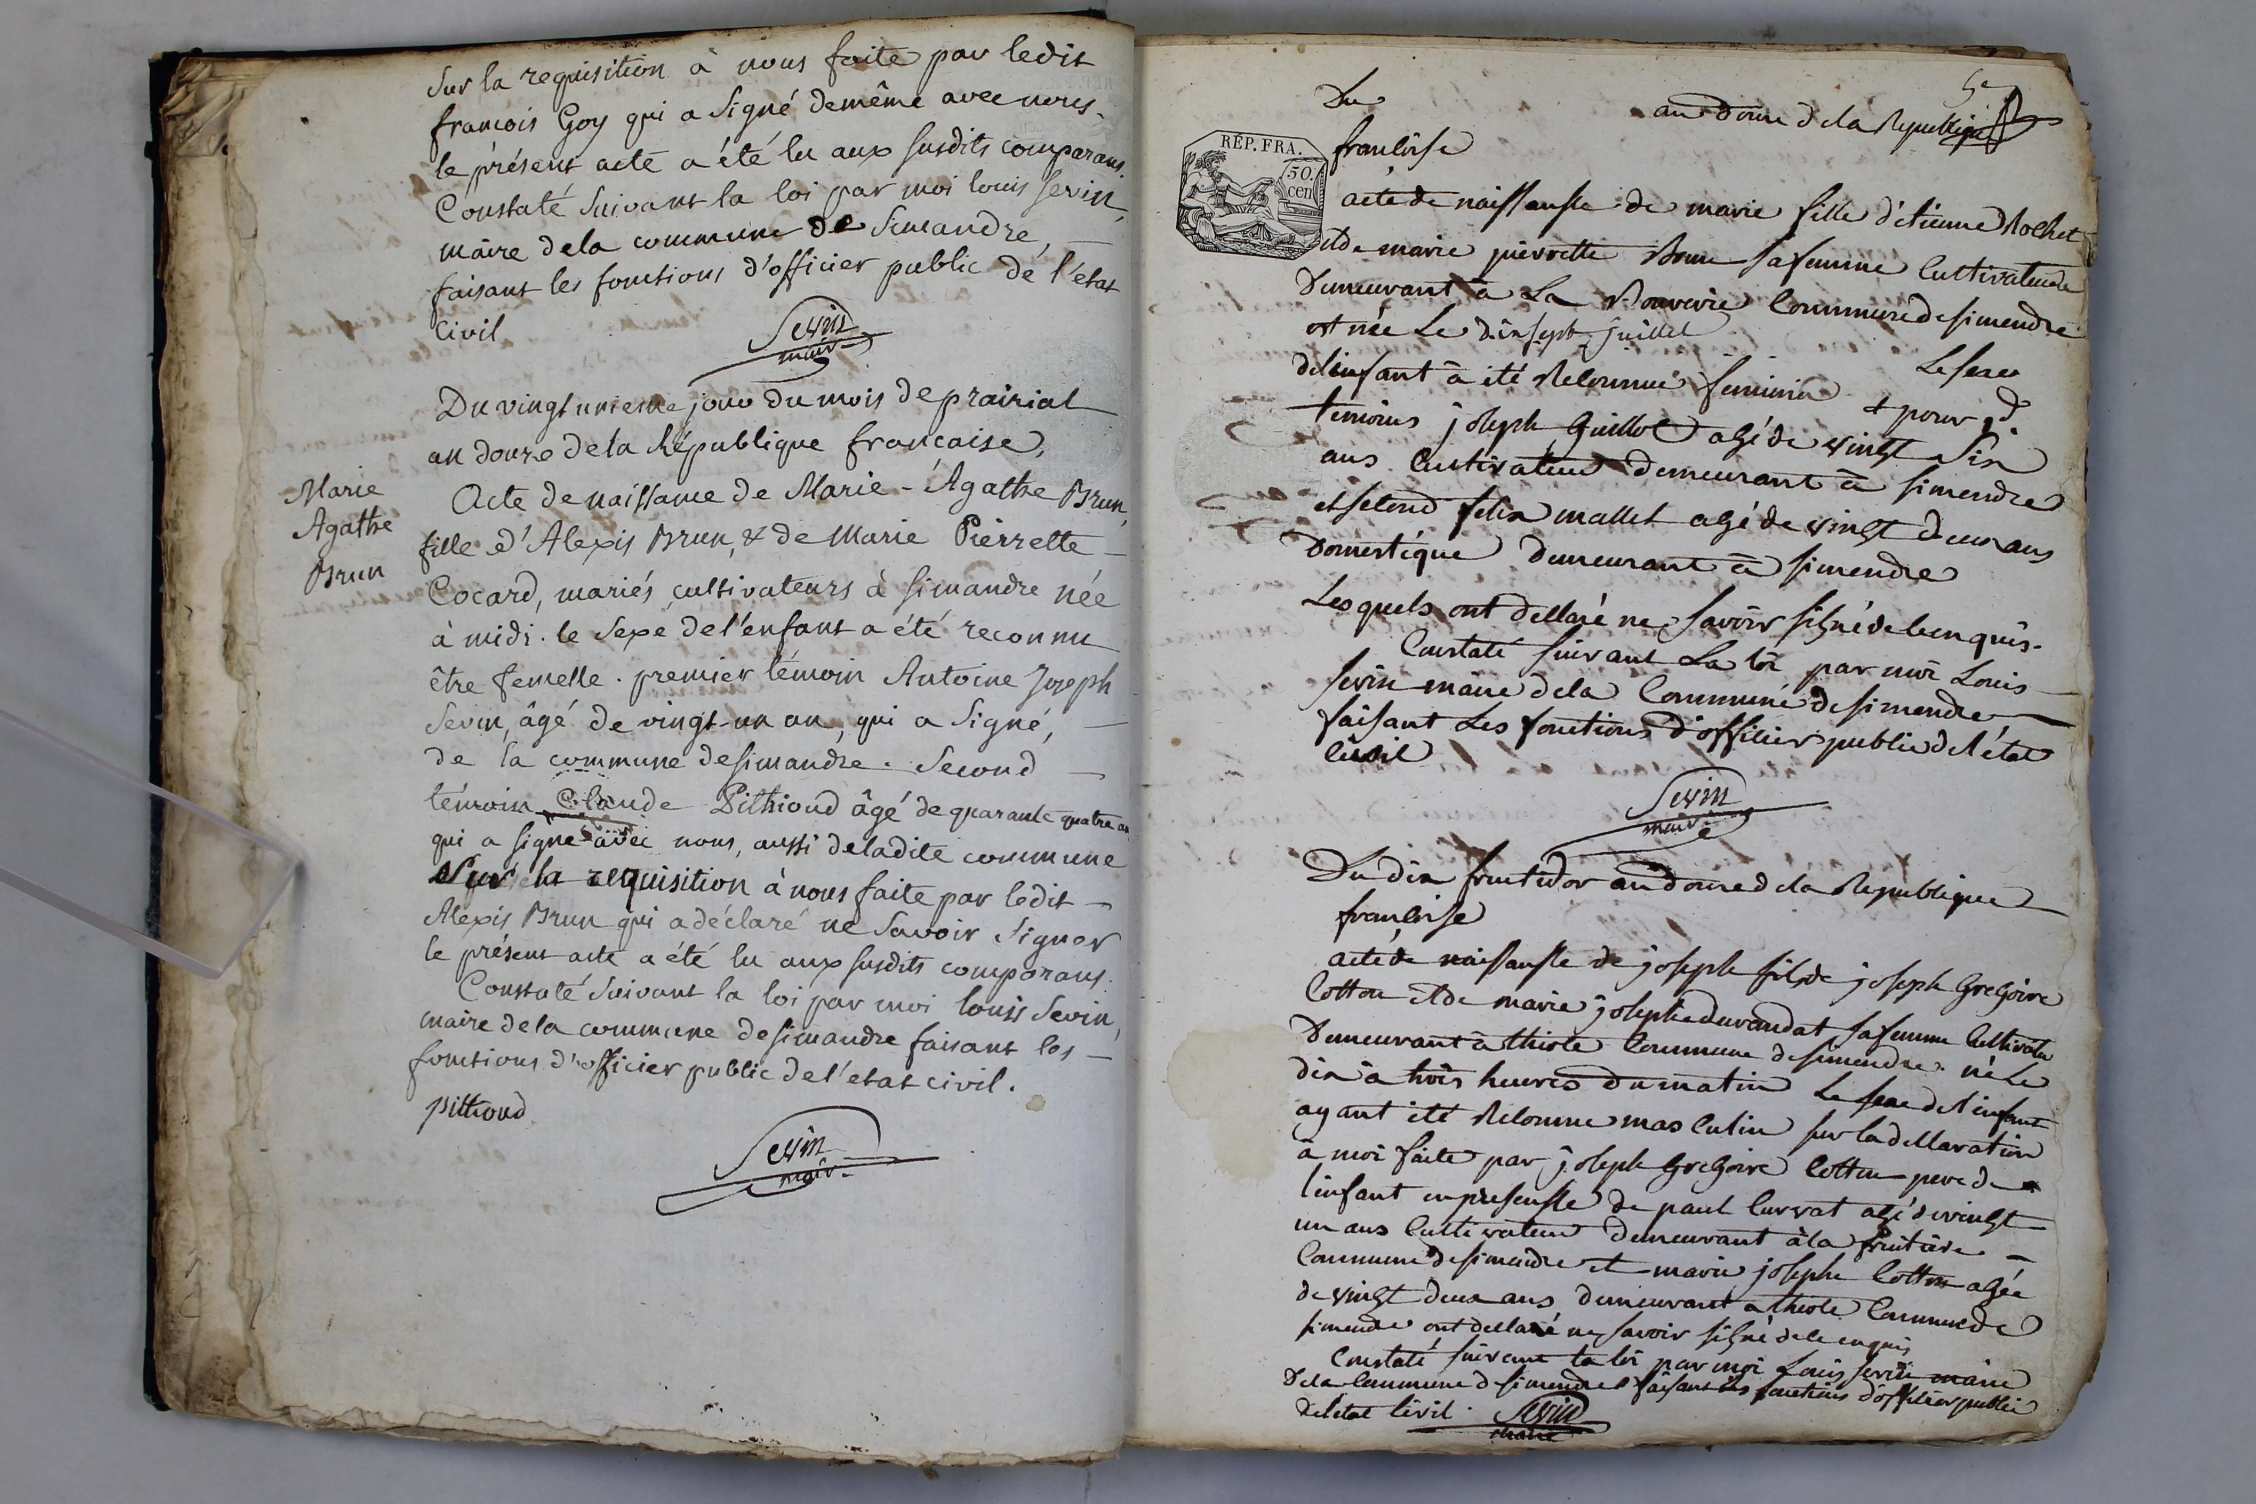 Sur la requisition à nous faite par ledit
francois Goy qui a signé demême avec nous.
le présent acte a été lu aux susdits comparans.
Constaté suivant la loi par moi louis Sevin,
maire dela commune de Simandre,
faisant les fonctions d'officier public de l'état
Civil
Sevin
maire
Du vingt unieme jour du mois de prairial
an douze dela République francaise,
Marie
Agathe
Brun
Acte de naissance de Marie-Agathe Brun,
fille d'Alexis Brun, & de Marie Pierrette
Cocard, mariés cultivateurs à simandre née
à midi. le Sexe del'enfant a été reconnu
être femelle. premier témoin Antoine Joseph
Sevin, âgé de vingt-un an, qui a signé,
de la commune desimandre. Second
témoin Claude Pithioud âgé de quarante quatre an
qui a signé avec nous, aussi deladite commune
Sur la requisition à nous faite par ledit
Alexis Brun qui a déclaré ne Savoir signer
le présent acte a été lu aux susdits comparans.
Constaté suivant la loi par moi louis Sevin,
maire dela commune desimandre faisant les
fonctions d'officier public de l'etat civil.
pithioud
Sevin
maire
5e
Du an douze dela Republique
francoise
RÉP. FRA.
50.
cen
acte de naissansse de marie fille d'etienne Rochet
et de marie pierrette Brun sa femme Cultivateure
Demeurant à La Bouverie Commune de simendre
est née Le dix sept juillet Le sexe
del'enfant à été Reconnue feminin + pour pr
temoins joseph Guillot agé de vingt Six
ans Cultivateur demeurant à simendre
et second felix mallet agé de vingt deux ans
Domestique Demeurant à simendre
Lesquels ont declaré ne savoir signé de ce enquis.
Constaté suivant La loi par moi Louis
sevin maire dela Commune de simendre
faisant Les fonctions d'officier public del'état
Civil
Sevin
maire
Du dix fructidor an douze dela Republique
francoise
acte de naissansse de joseph fils de joseph Gregoire
Cotton et de marie josephe durandat sa femme Cultivateur
Demeurant à thiole Commune de simendre. né Le
dix à trois heures du matin Le sexe del'enfant
ayant été Reconnue masculin sur la declaration
à moi faite par joseph Gregoire Cotton pere de
l'enfant en presensse de paul Curvat agé de vingt
un ans Cultivateur demeurant à la fruitière
Commune de simendre et marie josephe Cotton agée
de vingt deux ans demeurant a thiole Commune de
simendre ont declaré ne savoir signé de ce enquis
Constaté suivant la loi par moi Louis sevin maire
Dela Commune de simendre faisant les fonctions d'officier public
del'etat Civil. Sevin
maire